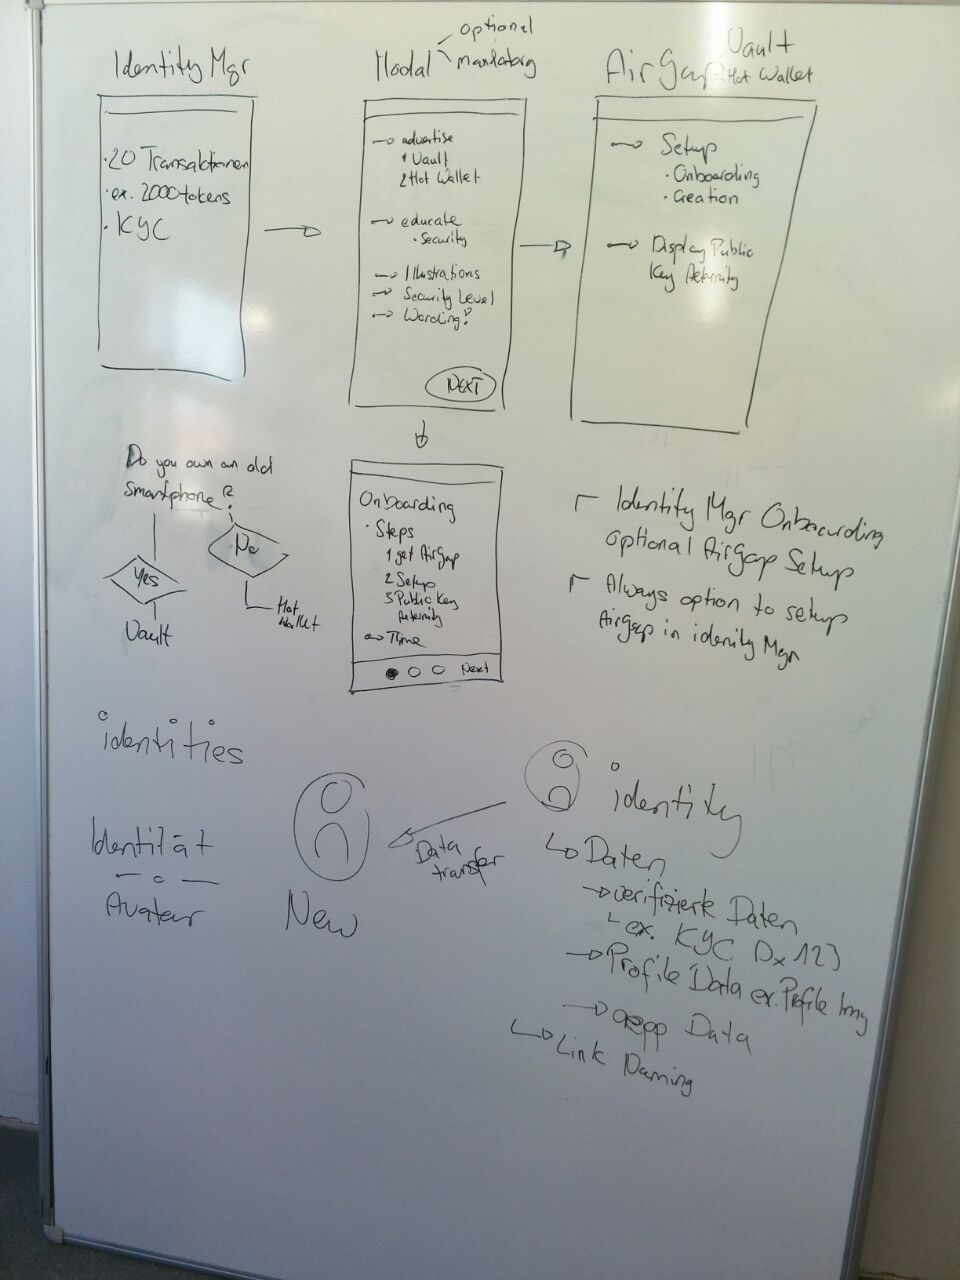 Identity Mgr
· 20 Transaktionen
· ex. 2000 tokens
· KYC
Modal
optional
mandatory
→ advertise
1 Vault
2 Hot Wallet
→ educate
· Security
→ Illustrations
→ Security Level
→ Wording?
NEXT
AirGap
Vault
Hot Wallet
→ Setup
· Onboarding
· Creation
→ Display Public
Key Aeternity
Do you own an old
smartphone?
Yes
Vault
No
Hot
Wallet
Onboarding
· Steps
1 get AirGap
2 Setup
3 Public Key
Aeternity
→ Time
Next
Identity Mgr Onboarding
optional AirGap Setup
Always option to setup
Airgap in idenity Mgr
identities
Identität
Avatar
New
Data
transfer
identity
↳ Daten
→ verifizierte Daten
↳ ex. KYC Dx123
→ Profile Data ex. Profile Img
→ aepp Data
↳ Link Naming